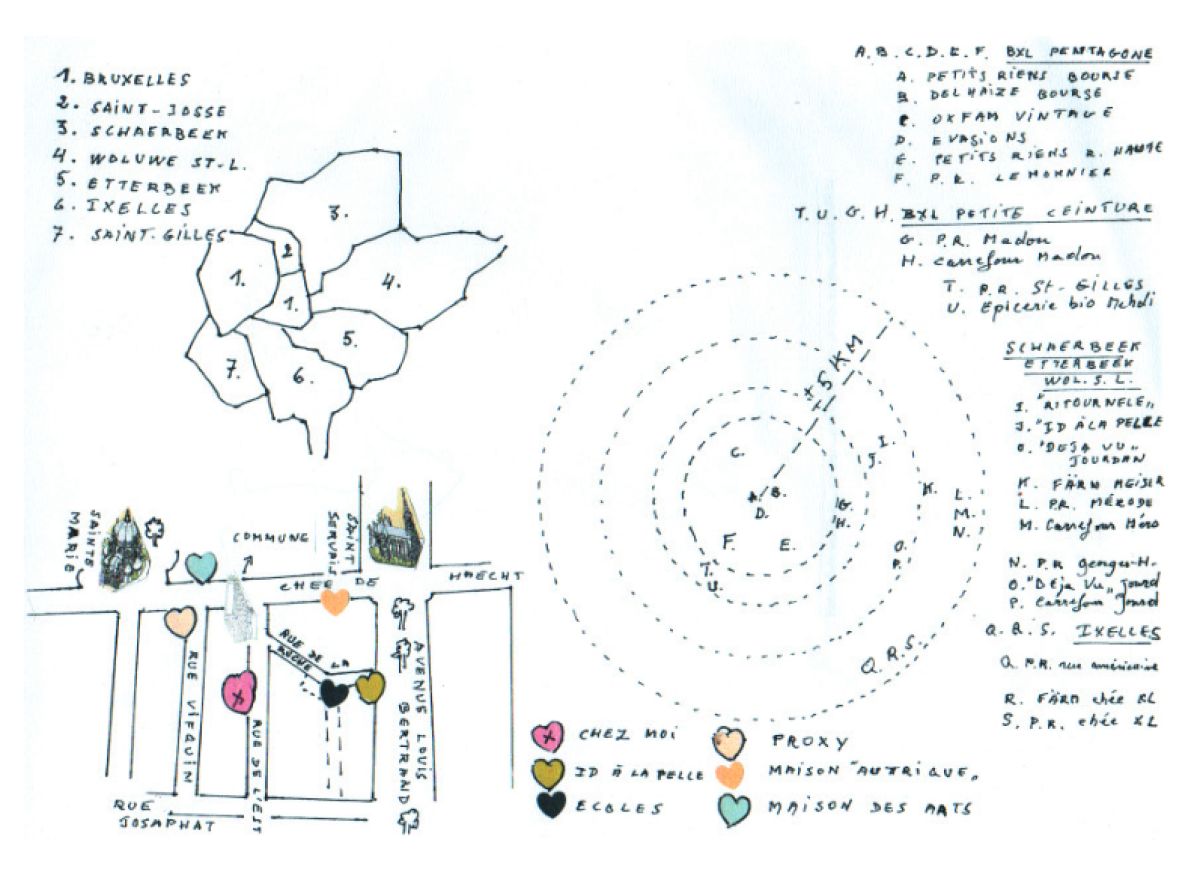 1. BRUXELLES
2. SAINT-JOSSE
3. SCHAERBEEK
4. WOLUWE ST-L.
5. ETTERBEEK
6. IXELLES
7. SAINT-GILLES
3.
2
1.
1.
4.
5.
7.
6.
A.B.C.D.E.F. BXL PENTAGONE
A. PETITS RIENS BOURSE
B. DELHAIZE BOURSE
C. OXFAM VINTAGE
D. EVASIONS
E. PETITS RIENS R. HAUTE
F. P.R. LEMONNIER
T.U.G.H. BXL PETITE CEINTURE
G. P.R. Madou
H. Carrefour Madou
T. P.R. St-GILLES
U. Epicerie bio Mehdi
SCHAERBEEK
ETTERBEEK
WOL.S.L.
I. "RITOURNELE„
J. "ID À LA PELLE
O. "DEJA VU„
JOURDAN
K. FÄRM MEISER
L. P.R. MÉRODE
M. Carrefour Méro
N. P.R georges-H.
O. "Deja Vu„ Jourd
P. Carrefour Jourd
Q.R.S. IXELLES
Q. P.R. rue américaine
R. FÄRM chée XL
S. P.R. chée XL
± 5 KM
C.
I.
J.
A. B.
D.
K.
L.
M.
N.
G.
H.
F.
E.
O.
P.
T.
U.
Q.R.S.
SAINTE
MARIE
COMMUNE
SAINT
SERVAIS
CHEE DE
HAECHT
RUE DE LA
RUCHE
RUE VIFQUIN
X
RUE DE L'EST
AVENUE LOUIS
BERTRAND
RUE
JOSAPHAT
X CHEZ MOI
PROXY
ID À LA PELLE
MAISON "AUTRIQUE„
ECOLES
MAISON DES ARTS